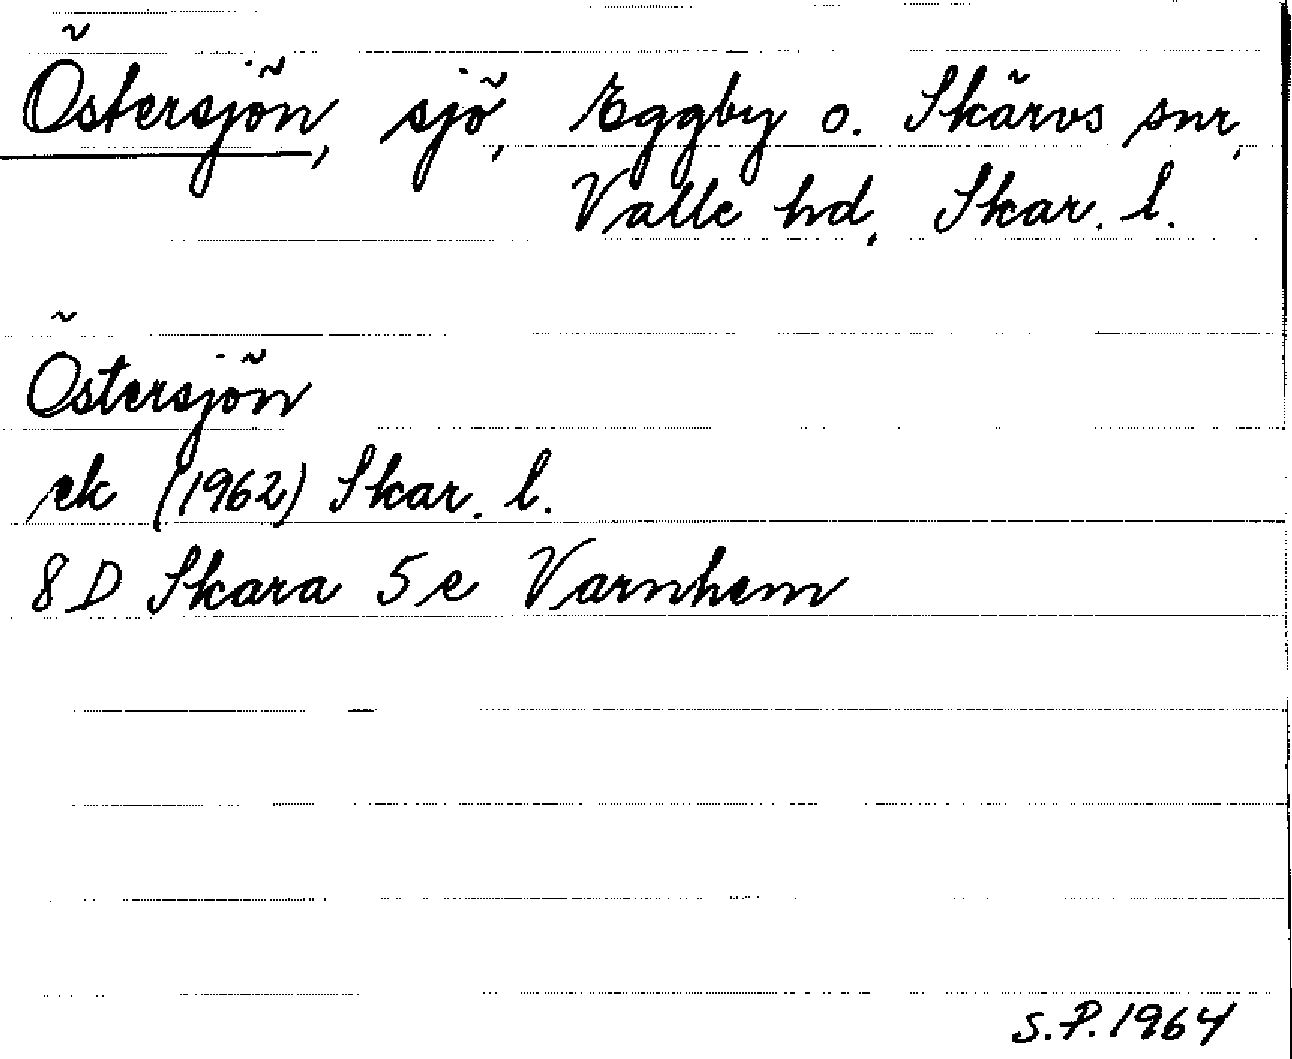 Östersjön, sjö, Eggby o. Skärvs snr,
Valle hd, Skar. l.
Östersjön
ek (1962) Skar. l.
8 D Skara 5 e Varnhem
S.P. 1964